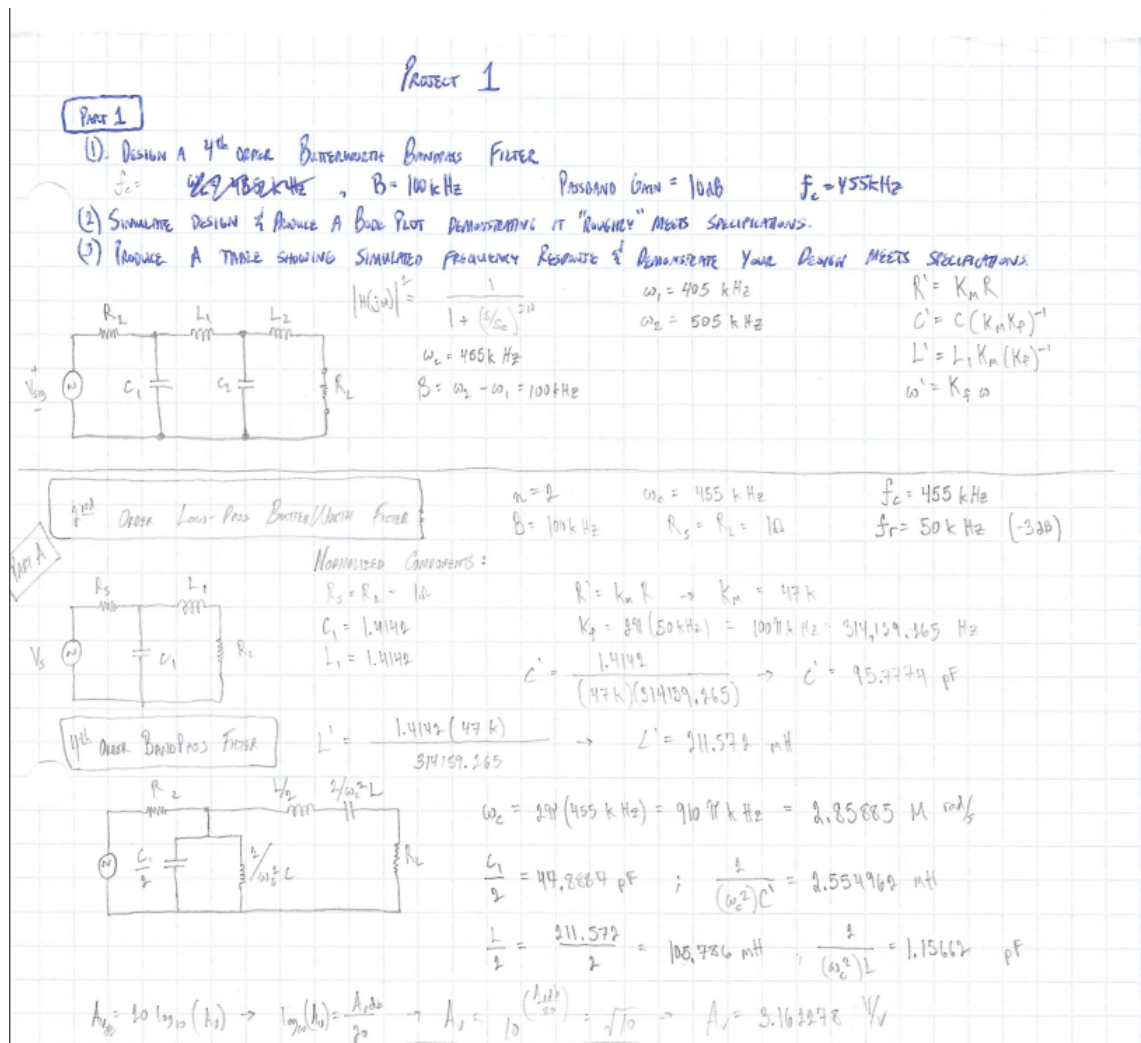 PROJECT 1
PART 1
(1). DESIGN A 4th ORDER BUTTERWORTH BANDPASS FILTER
fc= , B= 100kHz PASSBAND GAIN = 10dB fc=455kHz
(2) SIMULATE DESIGN & PRODUCE A BODE PLOT DEMONSTRATING IT "ROUGHLY" MEETS SPECIFICATIONS.
(3) PRODUCE A TABLE SHOWING SIMULATED FREQUENCY RESPONSE & DEMONSTRATE YOUR DESIGN MEETS SPECIFICATIONS.
|H(jω)|² = 1 / (1 + (s/sc)^2N) ω1 = 405 kHz R' = KmR
ω2 = 505 kHz C' = C(KmKf)^-1
ωc = 455k Hz L' = L1Km(Kf)^-1
B = ω2 - ω1 = 100kHz ω' = Kf ω
R2 L1 L2
Vsig C1 C2 RL
2nd ORDER LOW-PASS BUTTERWORTH FILTER n = 2 ωc = 455 kHz fc = 455 kHz
B = 100kHz Rs = RL = 1Ω fr = 50 kHz (-3dB)
PART A
NORMALIZED COMPONENTS:
Rs = R2 = 1Ω R' = Km R → Km = 47k
C1 = 1.4142 Kf = 2π(50kHz) = 100πkHz = 314,159.265 Hz
L1 = 1.4142 C' = 1.4142 / (47k)(314159.265) → C' = 95.7774 pF
Rs L1
Vs C1 RL
4th ORDER BANDPASS FILTER L' = 1.4142(47k) / 314159.265 → L' = 211.572 mH
R2 L/2 2/ωc²L
C1/2 2/ωc²L RL
ωc = 2π(455 kHz) = 910πkHz = 2.85885 M rad/s
C1/2 = 47.8887 pF ; 2/(ωc²)C' = 2.554962 mH
L/2 = 211.572/2 = 105.786 mH ; 2/(ωc²)L = 1.15662 pF
Avdb = 20 log10(Av) → log10(Av) = Avdb/20 → Av = 10^(Avdb/20) = √10 → Av = 3.162278 V/V